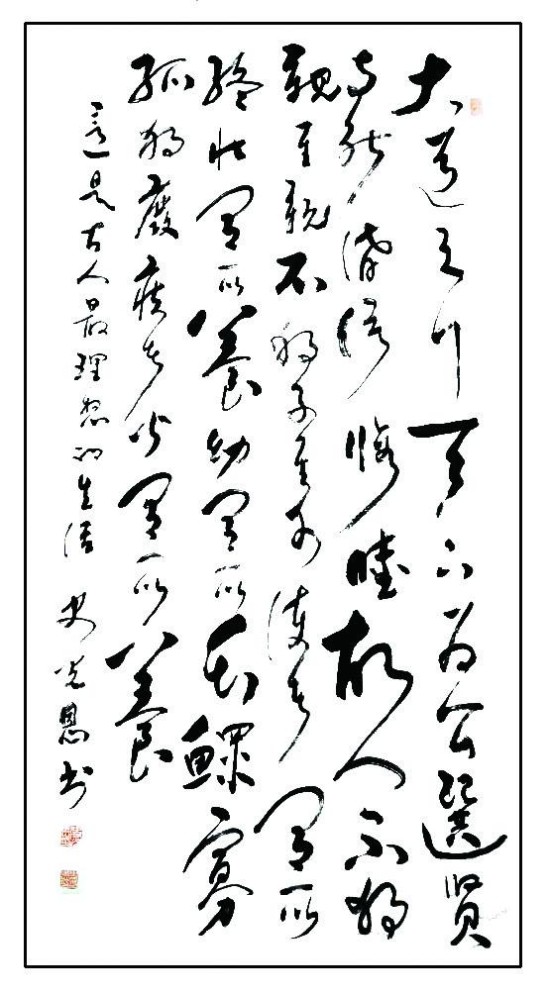 大道之行天下为公選贤
与能講信修睦故人不独
親其親不独子其子使老有所
終壮有所養幼有所长鰥寡
孤独廢疾者皆有所養
這是古人最理想的生活 史光恩书